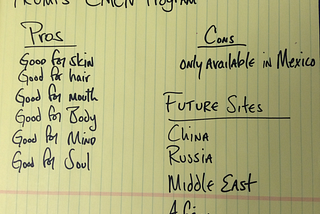 Program
Pros
Good for skin
Good for hair
Good for mouth
Good for Body
Good for Mind
Good for Soul
Cons
only Available in Mexico
Future Sites
China
Russia
Middle East